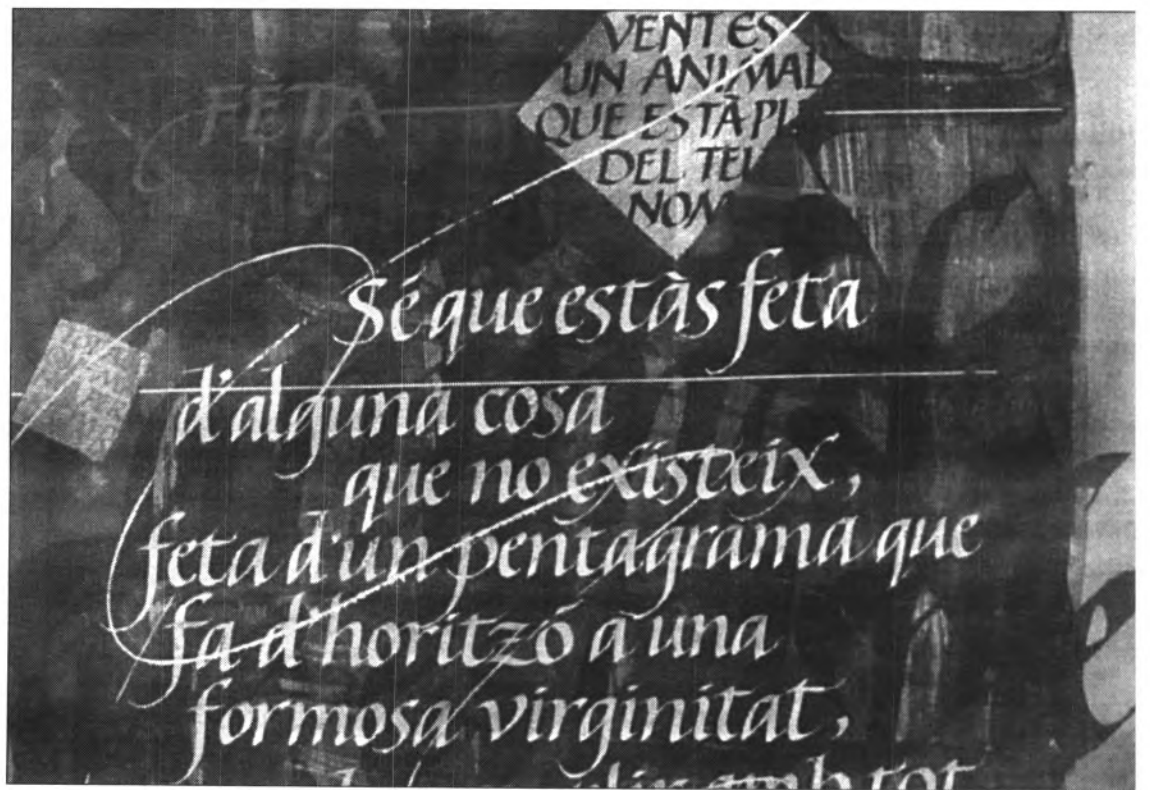 VENT ES
UN ANIMAL
QUE ESTÀ PL
DEL TEU
NOM
FETA
Sé que estàs feta
d'alguna cosa
que no existeix,
feta d'un pentagrama que
fa d'horitzó a una
formosa virginitat,
amb tot